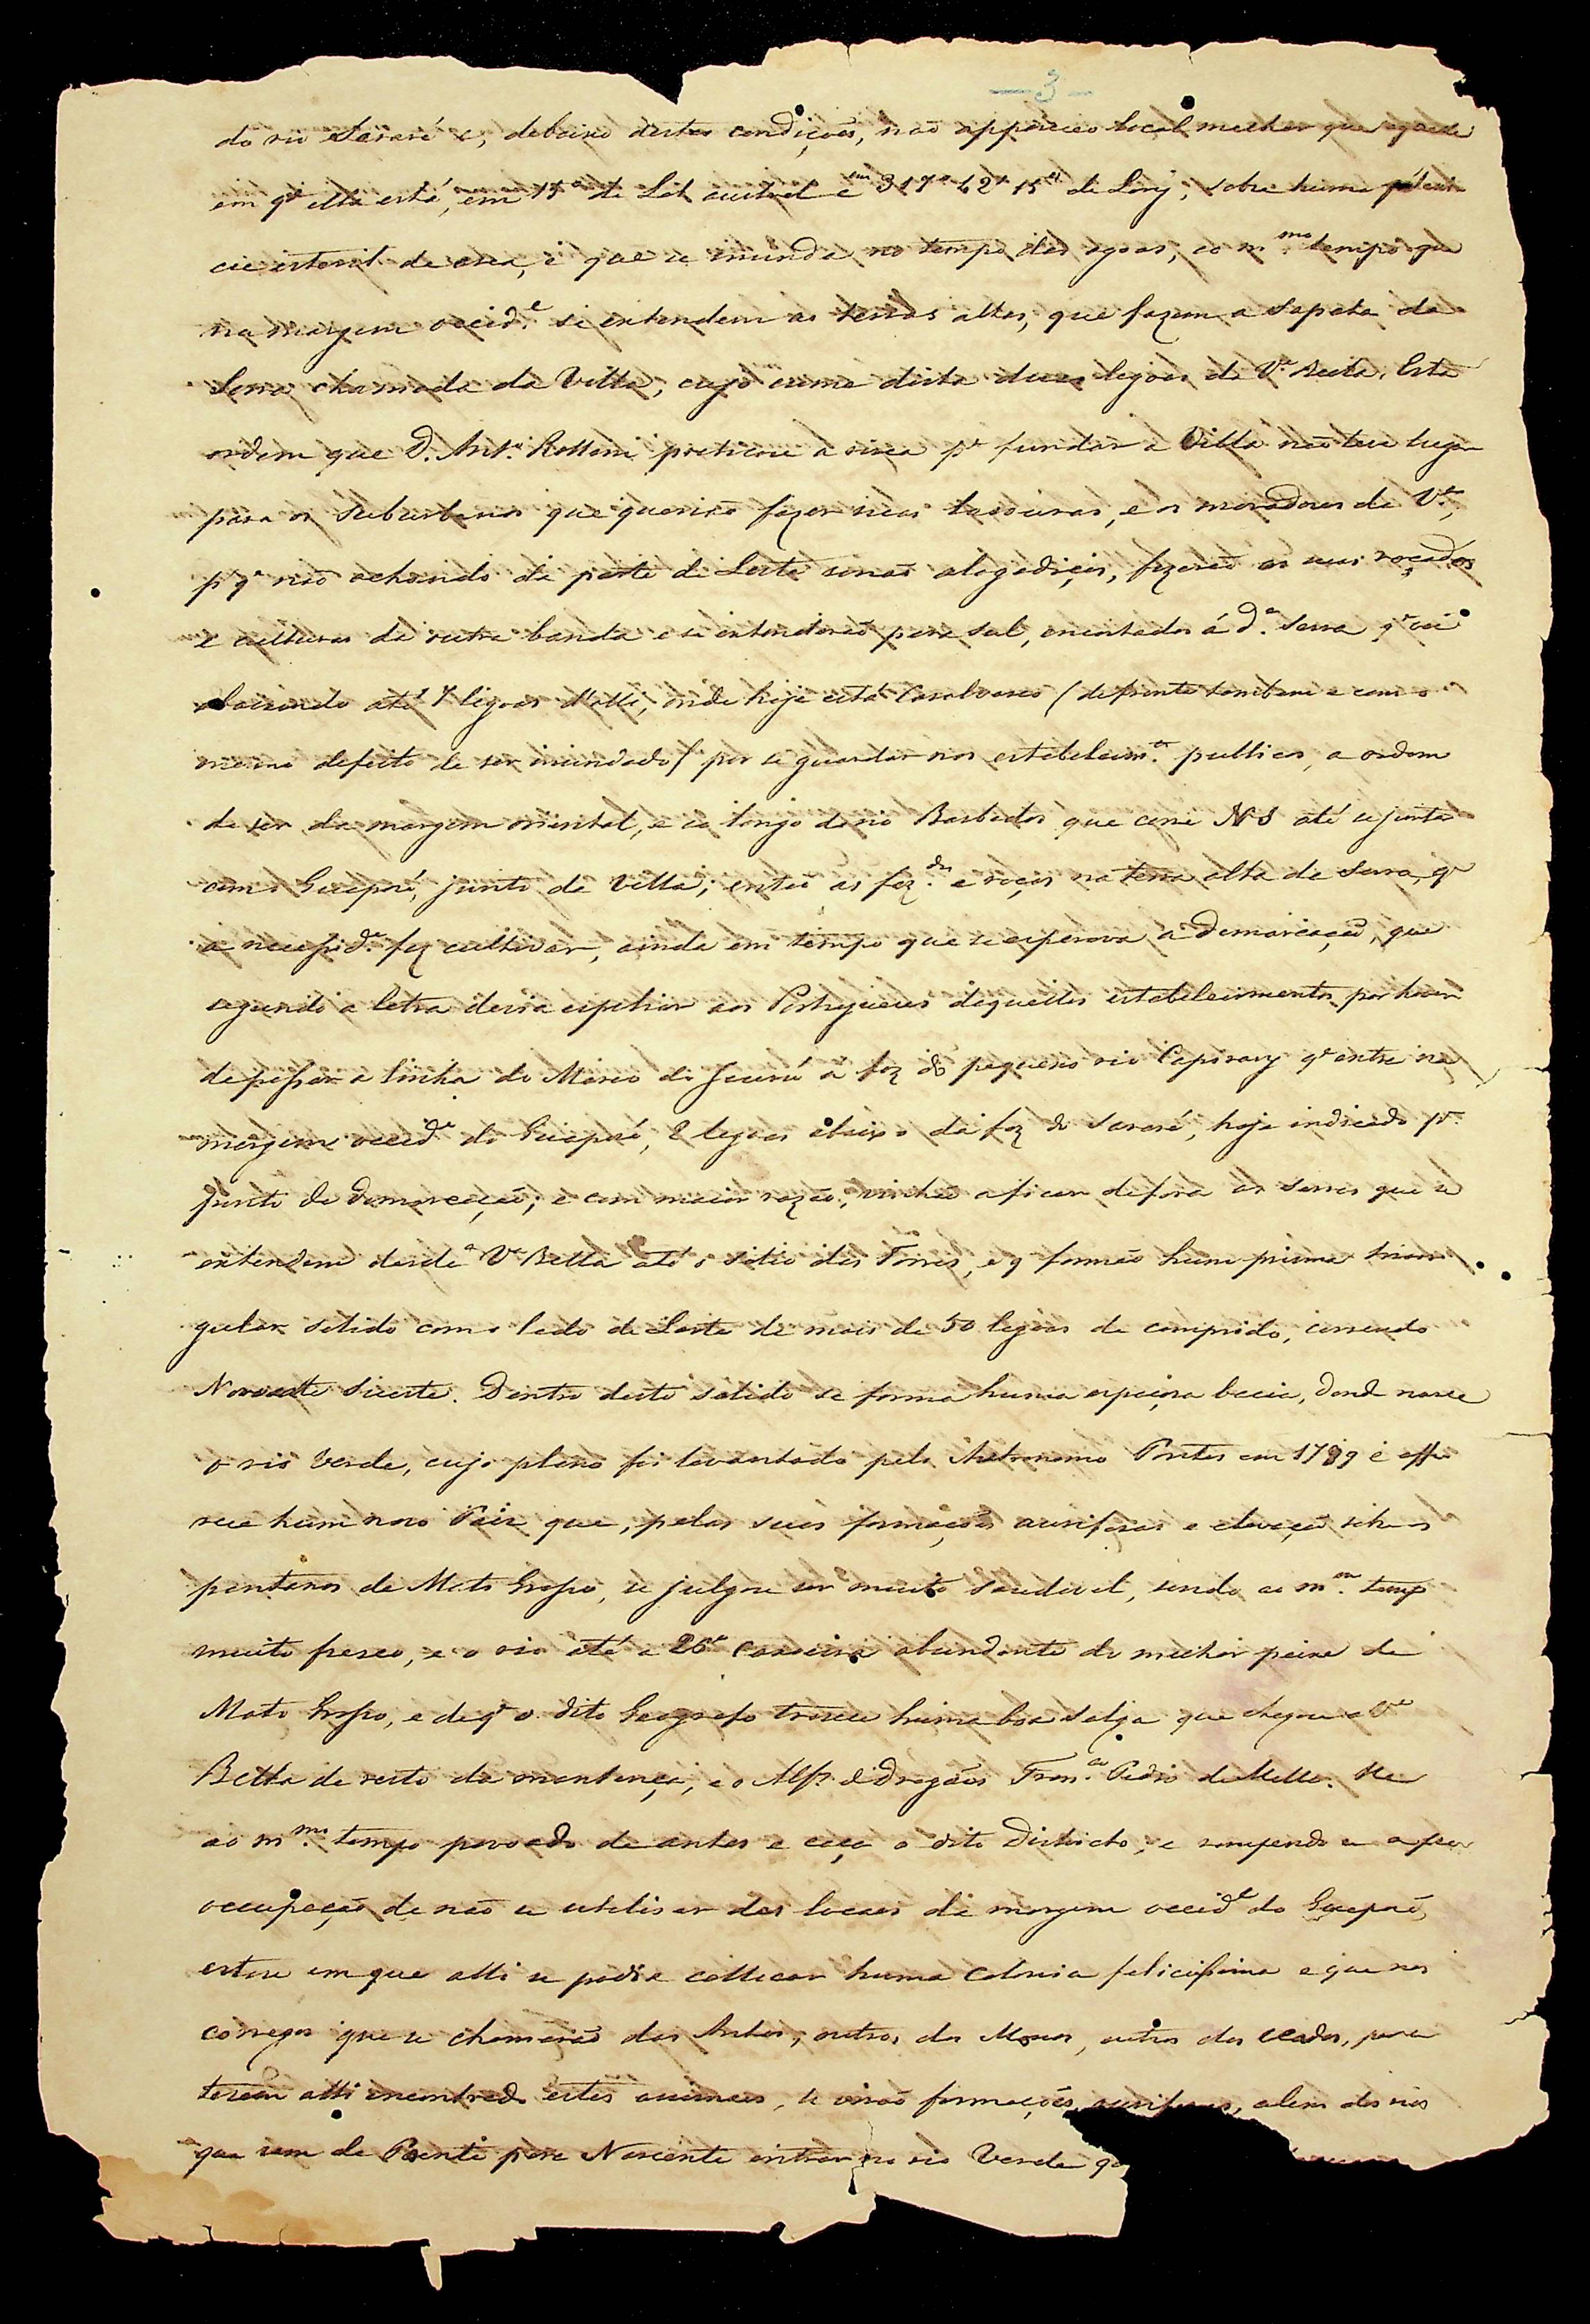 — 3 —
do rio Sararé e, debaixo destas condições, não appareceo local melhor que aquele
em q.e ella está, em 15° de Lat. austral e em 317° 42' 15" de Long., sobre huma
cie esteril de area, e que se inunda no tempo das agoas, ao m.mo tempo que
na margem occid.e se extendem as terras altas, que fazem a Sapata da
Serra chamada da Villa, cujo cume dista duas legoas de V.a Bella. Esta
ordem que D. Ant.o Rollim praticou á risca p.a fundar a Villa não teve lugar
para os Suburbanos que querião fazer suas lavouras, e os moradores de V.a,
p q.e não achando da parte de Leste senão alagadiços, fizerão os seus roçados
e culturas da outra banda e se extenderão para sul, encostados á d.a Serra q.e vai
abaixando até 7 legoas d'alli, onde hoje está Casalvasco (defronte tambem e com o
mesmo defeito de ser inundado) por se guardar nos estabelecim.tos publicos, a ordem
de ser da margem oriental, e ao longo do rio Barbados que corre N S até se juntar
com o Guaporé, junto da Villa; então as faz.das e roças na terra alta da Serra, q.e
a necessid.e fez cultivar, ainda em tempo que se esperava a Demarcação, que
segundo a letra devia expelir aos Portugueses daquelles estabelecimentos por haver
de passar a linha do Marco do Jaurú á foz do pequeno rio Capivary q.e entra na
margem occid.e do Guaporé, 2 legoas abaixo da foz do Sararé, hoje indicado p.r
ponto de demarcação; e com maior razão, vinhão a ficar de fora as serras que se
extendem desde a V.a Bella até o sitio das Torres, e q formão hum prisma trian
gular solido com o lado de Leste de mais de 50 legoas de comprido, correndo
Noroeste Sueste. Dentro deste solido se forma huma espaçosa bacia, donde nasce
o rio Verde, cujo plano foi levantado pelo Astronomo Pontes em 1789 e offe
rece hum novo Paiz que, pelas suas formações auriferas e elevação sobre os
pantanos de Mato Grosso, se julgou ser muito saudavel, sendo ao m.mo tempo
muito fresco, e o rio até a 26a Caxoeira abundante do melhor peixe de
Mato Grosso, e de q.e o dito Geografo trouxe huma boa salga que chegou a V.a
Bella de resto da mantença, e o Alf.s de Dragões Fran.co Pedro de Mello. He
ao m.mo tempo povoado de antas e caça o dito Districto; e rompendo se a preo
occupação de não se utilisar dos locaes da margem occid.e do Guaporé,
estou em que alli se podia collocar huma Colonia felicissima e que nos
corregos que se chamarão das Antas, outros dos Monos, outros dos Veados, para
terem alli encontrado estes animaes, se virão formações auriferas, alem dos rios
que vem de Poente para Nascente entrar no rio Verde